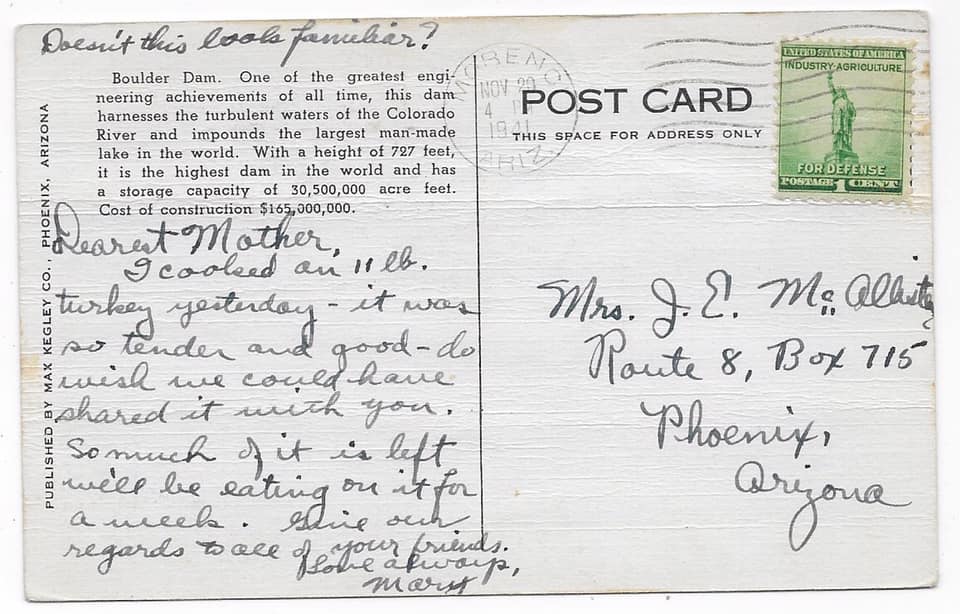 Doesn't this look familiar?
Boulder Dam. One of the greatest engi-
neering achievements of all time, this dam
harnesses the turbulent waters of the Colorado
River and impounds the largest man-made
lake in the world. With a height of 727 feet,
it is the highest dam in the world and has
a storage capacity of 30,500,000 acre feet.
Cost of construction $165,000,000.
PUBLISHED BY MAX KEGLEY CO., PHOENIX, ARIZONA
Dearest Mother,
I cooked an 11 lb.
turkey yesterday - it was
so tender and good - do
wish we could have
shared it with you.
So much of it is left
we'll be eating on it for
a week. Give our
regards to all of your friends.
Love always,
Mary
MORENCI
NOV 20
4
1941
ARIZ.
POST CARD
THIS SPACE FOR ADDRESS ONLY
UNITED STATES OF AMERICA
INDUSTRY·AGRICULTURE
FOR DEFENSE
POSTAGE 1 CENT
Mrs. J. E. McAllister
Route 8, Box 715
Phoenix,
Arizona